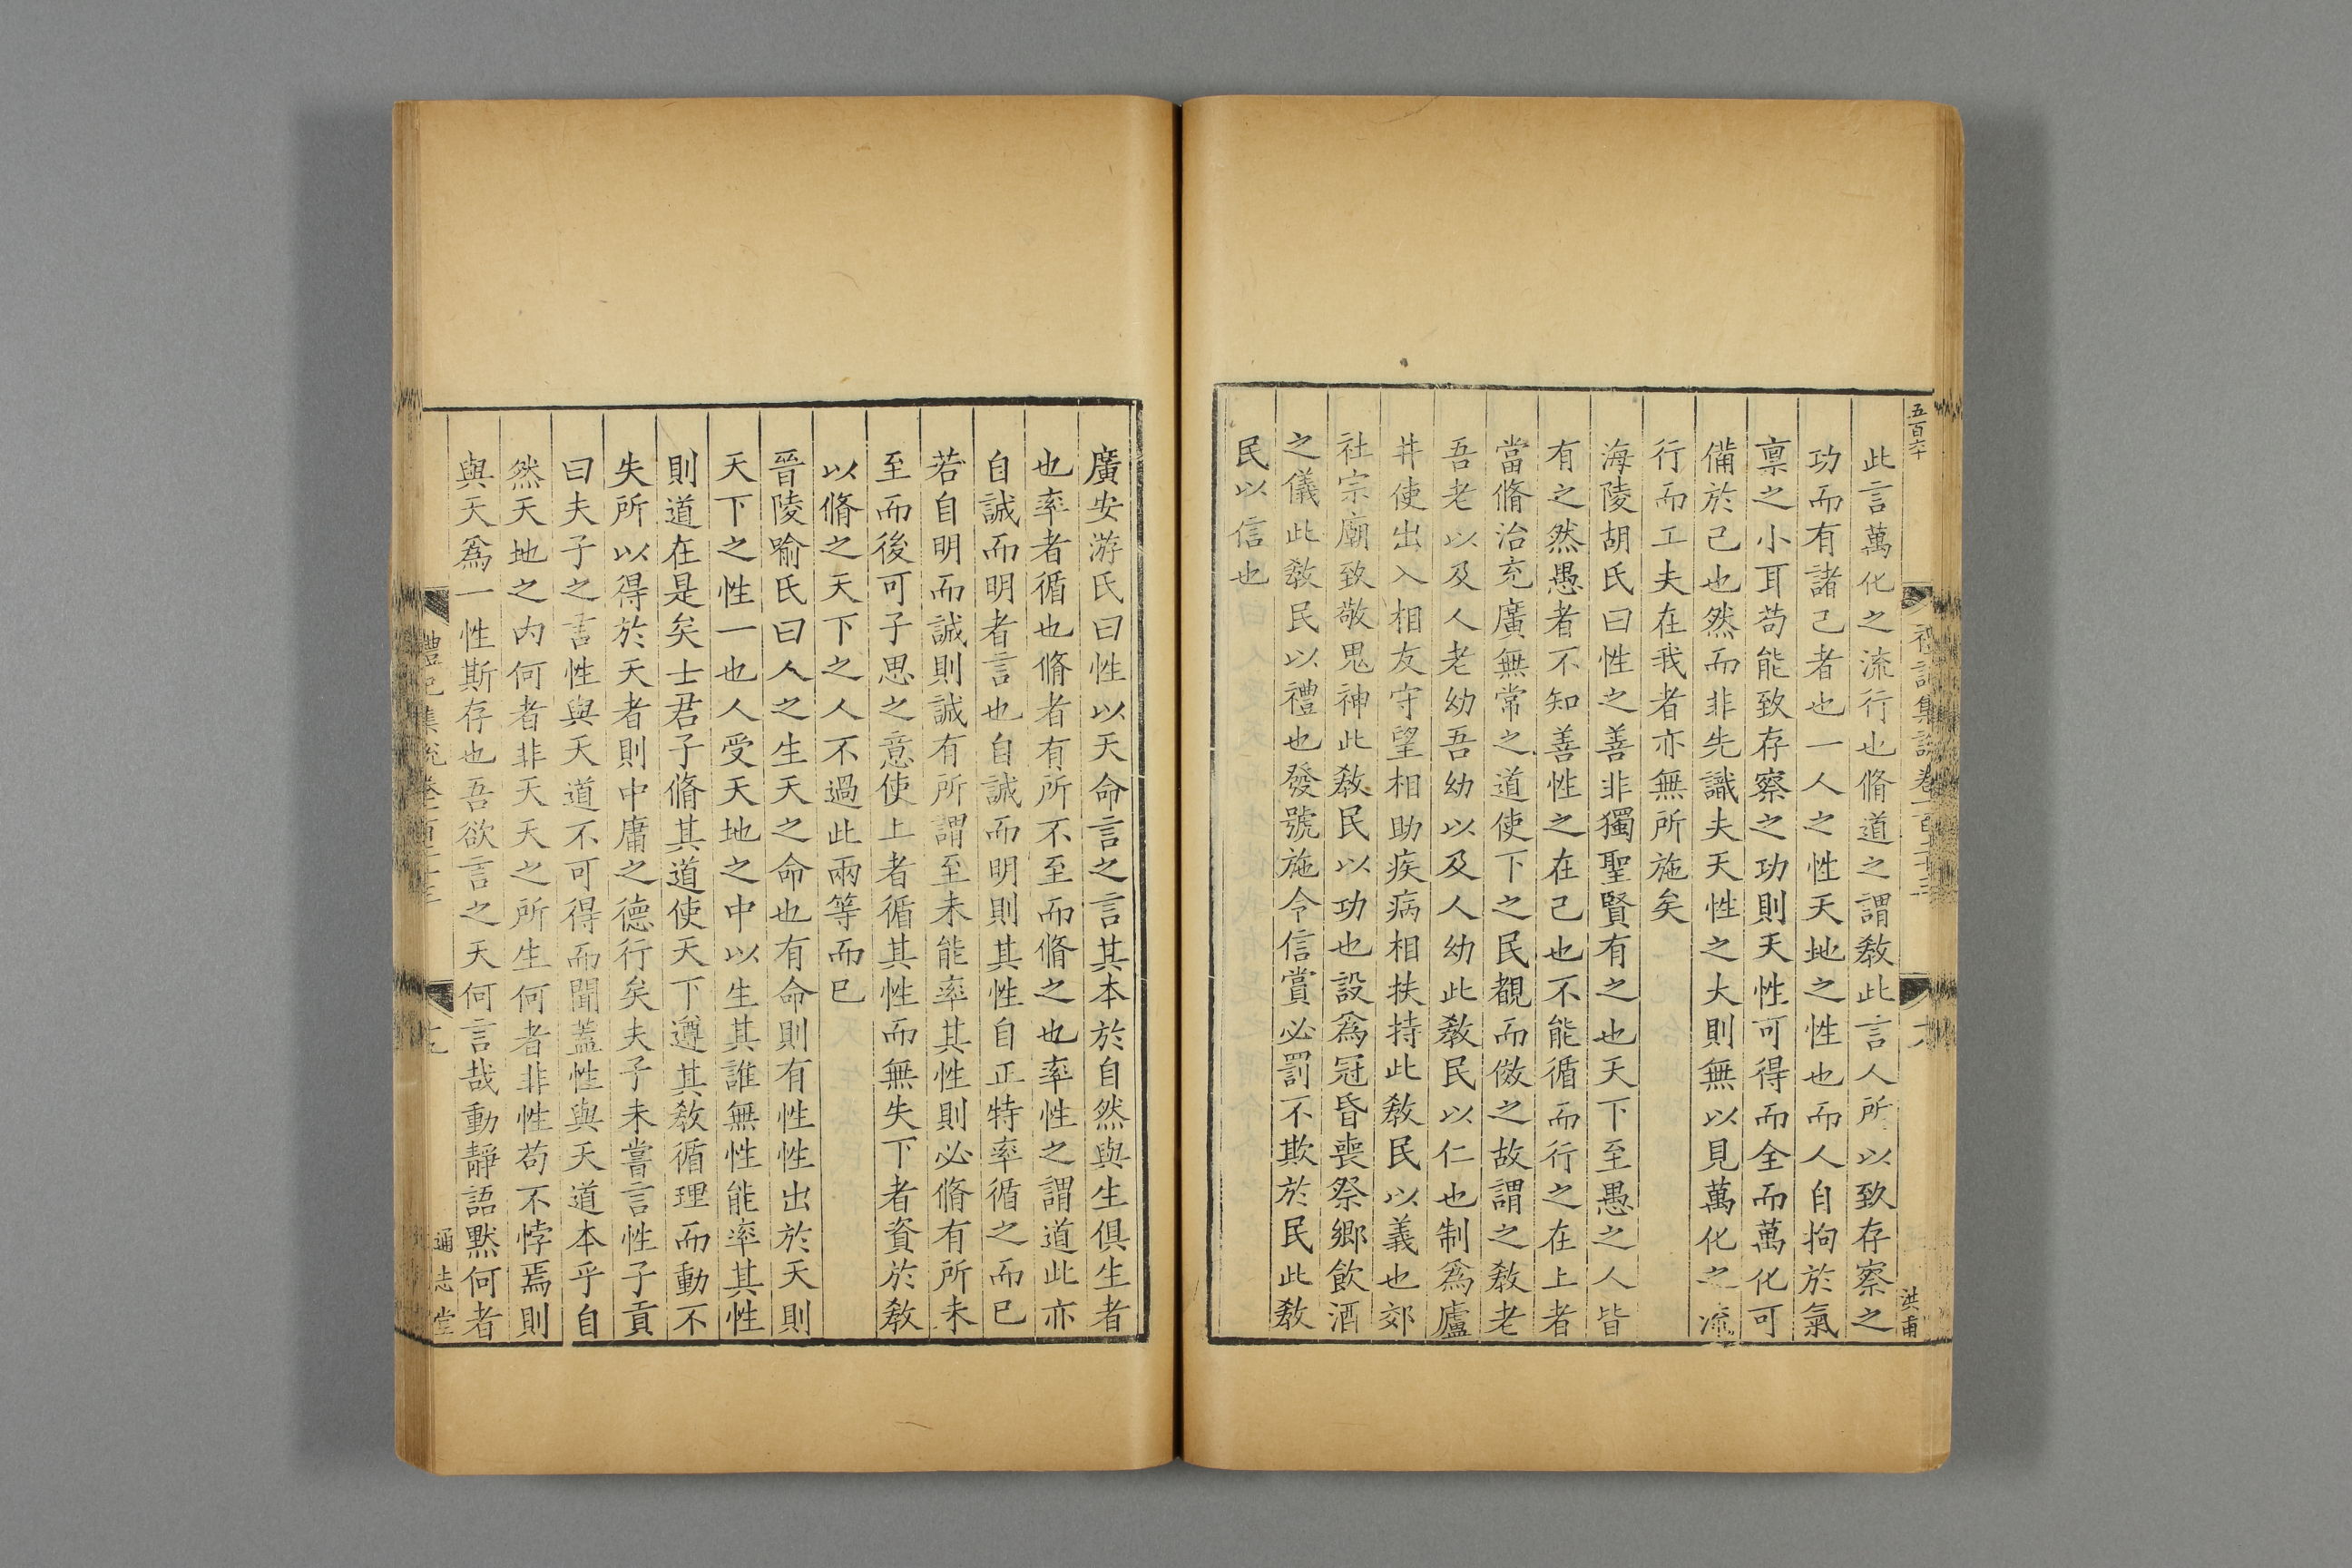 五百六十
此言萬化之流行也脩道之謂敎此言人所以致存察之
功而有諸己者也一人之性天地之性也而人自拘於氣
稟之小耳苟能致存察之功則天性可得而全而萬化可
備於己也然而非先識夫天性之大則無以見萬化之流
行而工夫在我者亦無所施矣
海陵胡氏曰性之善非獨聖賢有之也天下至愚之人皆
有之然愚者不知善性之在己也不能循而行之在上者
當脩治充廣無常之道使下之民覩而倣之故謂之敎老
吾老以及人老幼吾幼以及人幼此敎民以仁也制爲廬
井使出入相友守望相助疾病相扶持此敎民以義也郊
社宗廟致敬鬼神此敎民以功也設爲冠昏喪祭鄉飲酒
之儀此敎民以禮也發號施令信賞必罰不欺於民此敎
民以信也
洪甫
廣安游氏曰性以天命言之言其本於自然與生俱生者
也率者循也脩者有所不至而脩之也率性之謂道此亦
自誠而明者言也自誠而明則其性自正特率循之而已
若自明而誠則誠有所謂至未能率其性則必脩有所未
至而後可子思之意使上者循其性而無失下者資於敎
以脩之天下之人不過此兩等而已
晉陵喻氏曰人之生天之命也有命則有性性出於天則
天下之性一也人受天地之中以生其誰無性能率其性
則道在是矣士君子脩其道使天下遵其敎循理而動不
失所以得於天者則中庸之德行矣夫子未嘗言性子貢
曰夫子之言性與天道不可得而聞蓋性與天道本乎自
然天地之內何者非天天之所生何者非性苟不悖焉則
與天爲一性斯存也吾欲言之天何言哉動靜語默何者
通志堂